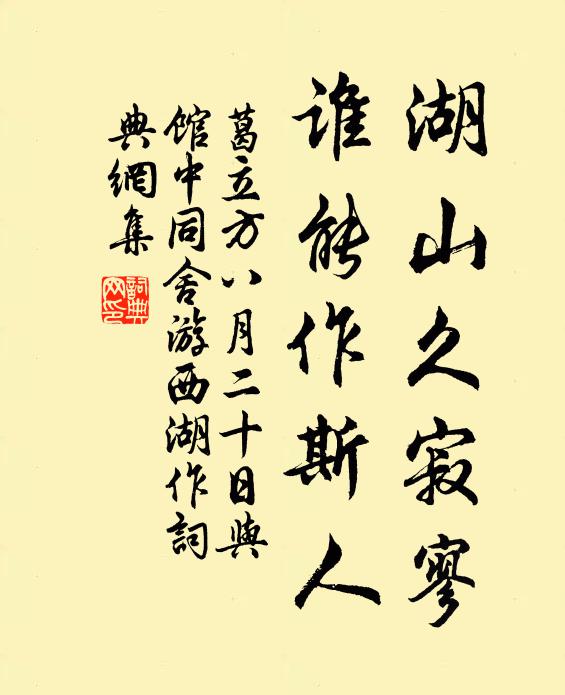 湖山久寂寥
谁能作斯人
葛立方八月二十日與
馆中同舍游西湖作詞
典網集
詞典網印